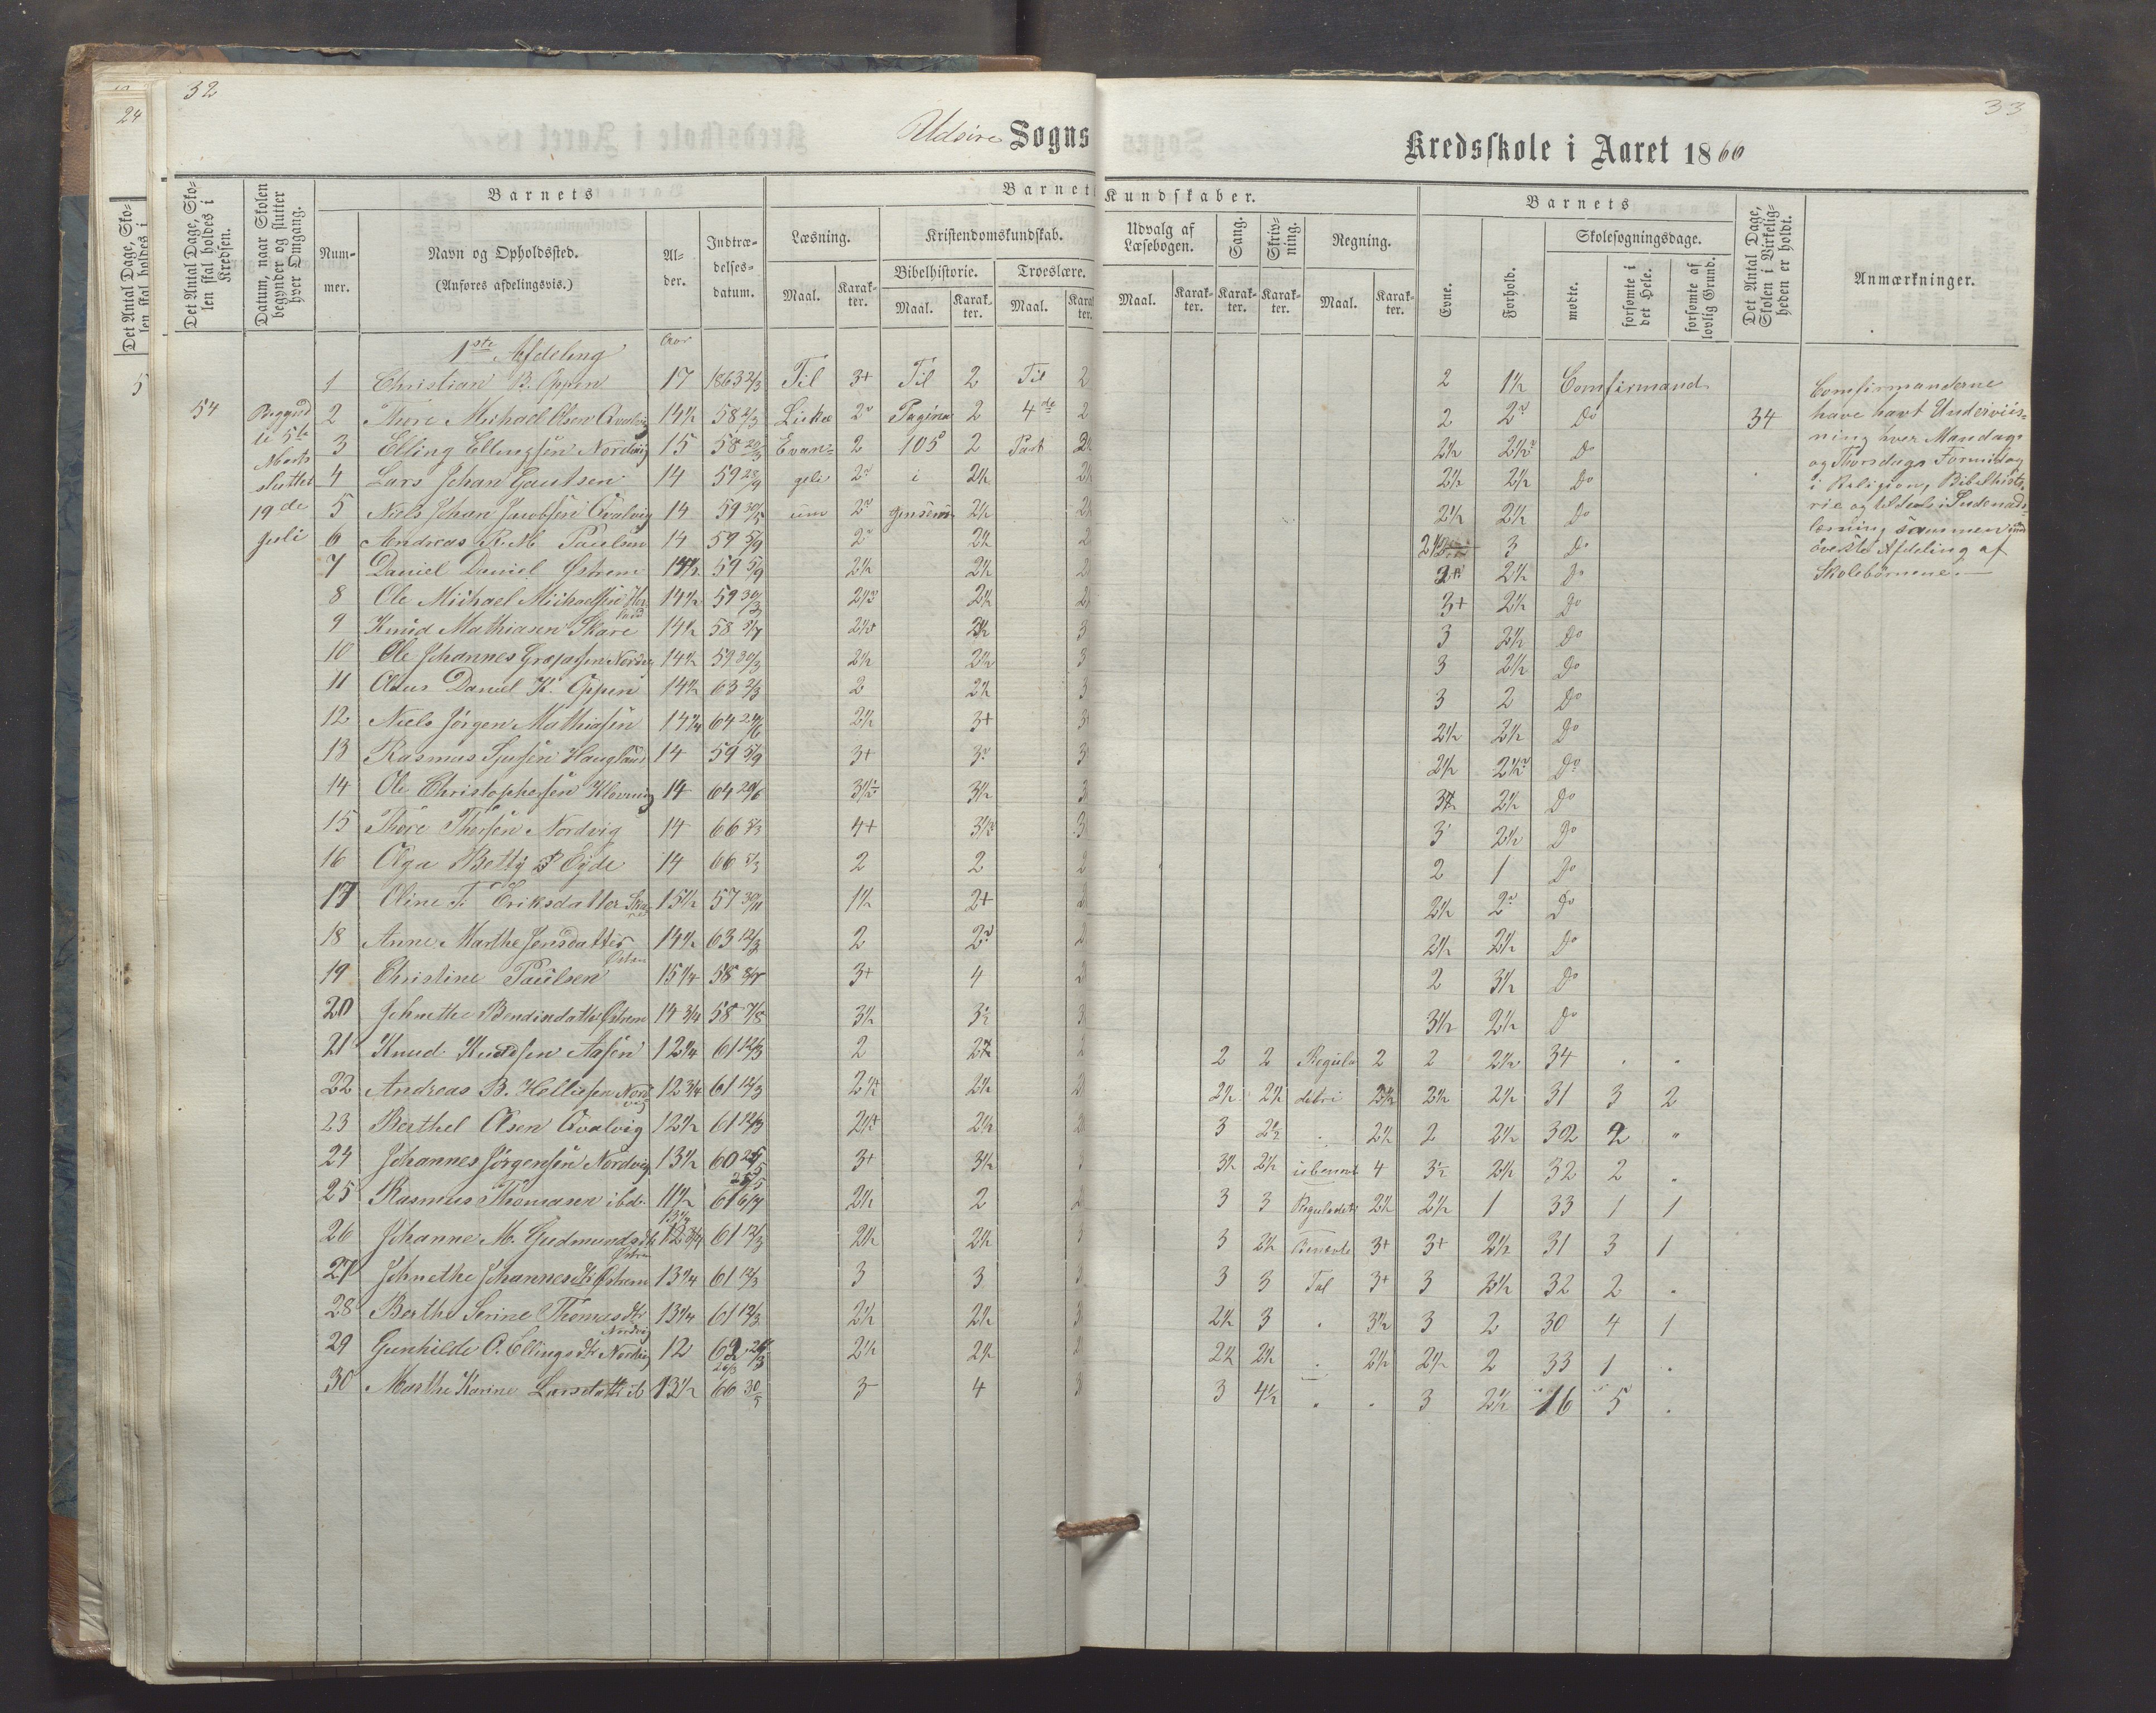 32
33
24
Udsire Sogns Kredsskole i Aaret 1866
Det Antal Dage, Skolen skal holdes i Kredsen.
Datum, naar Skolen begynder og slutter hver Omgang.
Barnets
Nummer.
Navn og Opholdssted.
(Anføres afdelingsvis.)
Alder.
Indtrædelsesdatum.
Barnets Kundskaber.
Læsning.
Maal.
Karakter.
Kristendomskundskab.
Bibelhistorie.
Maal.
Karakter.
Troeslære.
Maal.
Karakter.
Udvalg af Læsebogen.
Maal.
Karakter.
Sang.
Karakter.
Skrivning.
Karakter.
Regning.
Maal.
Karakter.
Barnets
Evne.
Forhold.
Skolesøgningsdage.
mødte.
forsømte i det Hele.
forsømte af lovlig Grund.
Det Antal Dage, Skolen i Virkeligheden er holdt.
Anmærkninger.
1ste Afdeling
Aar
1 Christian B. Oppen 17 1863 2/3 Til 3+ Til 2 Til 2 2 1½ Comfirmand
54 Begynd 2 Thore Michael Olsen Qvalvig 14½ 58 2/3 Luke 2 Pagina 2 4de 2 2 2 Do 34
te 5te 3 Elling Ellingsen Nordvig 15 58 Evan= 2 105 2 Part 2½ 2½ Do
Marts 4 Lars Johan Gautsen 14 59 geli 2 i 2½ 2½ 2½ Do
sluttet 5 Niels Johan Jacobsen Qvalvig 14 59 um 2 2½ 2½ 2½ Do
19de 6 Andreas R. M. Paulsen 14 59 5/9 2 2½ 2 3 Do
Juli 7 Daniel Daniel Østrem 59 5/9 2½ 2½ 2 2½ Do
8 Ole Michael Michaelsen 14½ 59 30/3 2½ 2½ 3+ 2½ Do
9 Knud Mathiasen Skare 14½ 58 2½ 3 3 2½ Do
10 Ole Johannes Nordvig 14½ 59 30/3 2½ 2½ 3 3 2½ Do
11 Claus Daniel K. Oppen 14½ 63 2/3 2 2½ 3 3 2 Do
12 Niels Jörgen Mathiasen 14¼ 64 2½ 3+ 3 2½ 2½ Do
13 Rasmus Haugland 14 59 5/9 3+ 3 3 2½ 2½ Do
14 Ole Christophersen Klovning 14 64 29/6 3½ 3½ 3 2½ Do
15 Thore Thorsen Nordvig 14 66 5/3 4+ 3½ 3 3 2½ Do
16 Olga Betty Eyde 14 66 5/3 2 2 2 2 1 Do
17 Oline T. Eriksdatter 15½ 57 30/11 1½ 2+ 2½ 2 Do
18 Anne Marthe Jensdatter 14½ 63 12/3 2 2 2 2½ 2½ Do
19 Christine Paulsen 15¼ 58 3+ 4 2 3½ Do
20 Johnethe Østrem 14¾ 58 7/5 3½ 3½ 3 3½ 2½ Do
21 Knud Knudsen Aasen 12¼ 61 12/3 2 2 2 2 Regula 2 2 2½ 34 . .
22 Andreas B. Helliesen Nordvig 12¾ 61 12/3 2½ 2½ 2½ 2½ detri 2½ 2½ 2½ 31 3 2
23 Berthel Olsen Qvalvig 12½ 61 12/3 2½ 2½ 3 2½ . 2½ 2 2½ 32 2 "
24 Johannes Jörgensen Nordvig 13½ 60 25/5 3+ 3½ 3½ 2½ ubenævnte 4 3½ 2½ 32 2 .
25 Rasmus Thomasen ibd. 11½ 61 2½ 2 3 3 Reguladetri 2½ 2½ 1 33 1 1
26 Johanne M. Gudmundsdtr 61 12/3 2½ 2½ 3 2½ Benævnte 3+ 3+ 2½ 31 3 1
27 Johnethe Johannesdtr Østrem 13¼ 61 12/3 3 3 3 3 3 Tal 3+ 3 2½ 32 2 .
28 Berthe Serine Thomasdtr Nordvig 13¼ 61 12/3 2½ 2½ 3 2½ 3 . 3½ 3 2 30 4 1
29 Gunhilde O. Ellingsdtr Nordvig 12 62 2½ 2½ 2½ 2½ . 2½ 2½ 2 33 1 .
30 Marthe Karine Larsdatter ib 13½ 66 30/5 3 4 3 3 4½ . . 3 2½ 16 5 .
Comfirmanderne
have havt Underviis-
ning hver Mandags
og Thorsdags Formiddag
i Religion, Bibelhisto-
rie og tildeels i Indenads-
læsning sammen med
överste Afdeling af
Skolebörnene.—